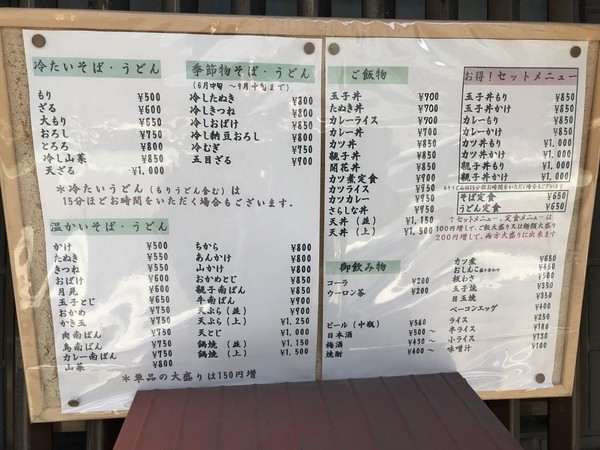 冷たいそば・うどん
もり ¥500
ざる ¥600
大もり ¥650
おろし ¥750
とろろ ¥800
冷し山菜 ¥850
天ざる ¥1,000
＊冷たいうどん(もりうどん含む)は
15分ほどお時間をいただく場合もございます。
季節物そば・うどん
(6月中旬 〜9月中旬まで)
冷したぬき ¥800
冷しきつね ¥800
冷しおばけ ¥850
冷し納豆おろし
冷むぎ ¥750
五目ざる ¥900
温かいそば・うどん
かけ ¥500
たぬき ¥550
きつね ¥550
おばけ ¥600
月見 ¥600
玉子とじ ¥650
おかめ ¥750
かき玉 ¥750
肉南ばん ¥750
鳥南ばん ¥750
カレー南ばん ¥750
山菜 ¥800
ちから ¥800
あんかけ ¥800
山かけ ¥800
おかめとじ ¥850
親子南ばん ¥850
牛南ばん ¥900
天ぷら (並) ¥900
天ぷら (上) ¥1,250
天とじ ¥1,000
鍋焼 (並) ¥1,150
鍋焼 (上) ¥1,500
＊単品の大盛りは150円増
ご飯物
玉子丼 ¥700
たぬき丼 ¥700
カレーライス ¥700
カレー丼 ¥700
カツ丼 ¥850
親子丼 ¥850
開花丼
カツ煮定食
カツライス ¥950
カツカレー ¥950
さらしな丼
天丼 (並) ¥1,150
天丼 (上) ¥1,500
お得！セットメニュー
玉子丼もり ¥850
玉子丼かけ ¥850
カレーもり ¥850
カレーかけ ¥850
カツ丼もり ¥1,000
カツ丼かけ ¥1,000
親子丼もり ¥1,000
親子丼かけ ¥1,000
もりうどんは15分程お時間をいただく場合もございます
そば定食 ¥650
うどん定食 ¥650
↑セットメニュー、定食メニューは
100円増して、ご飯大盛り又は麺類大盛り
200円増して、両方大盛りに出来ます
御飲み物
コーラ ¥200
ウーロン茶 ¥200
ビール (中瓶) ¥580
日本酒 ¥500〜
梅酒 ¥450〜
焼酎 ¥400〜
カツ煮 ¥650
おしんこ盛り合わせ ¥450
板わさ ¥500
玉子焼 ¥350
目玉焼 ¥350
ベーコンエッグ ¥400
ライス ¥250
半ライス ¥180
小ライス ¥130
味噌汁 ¥100